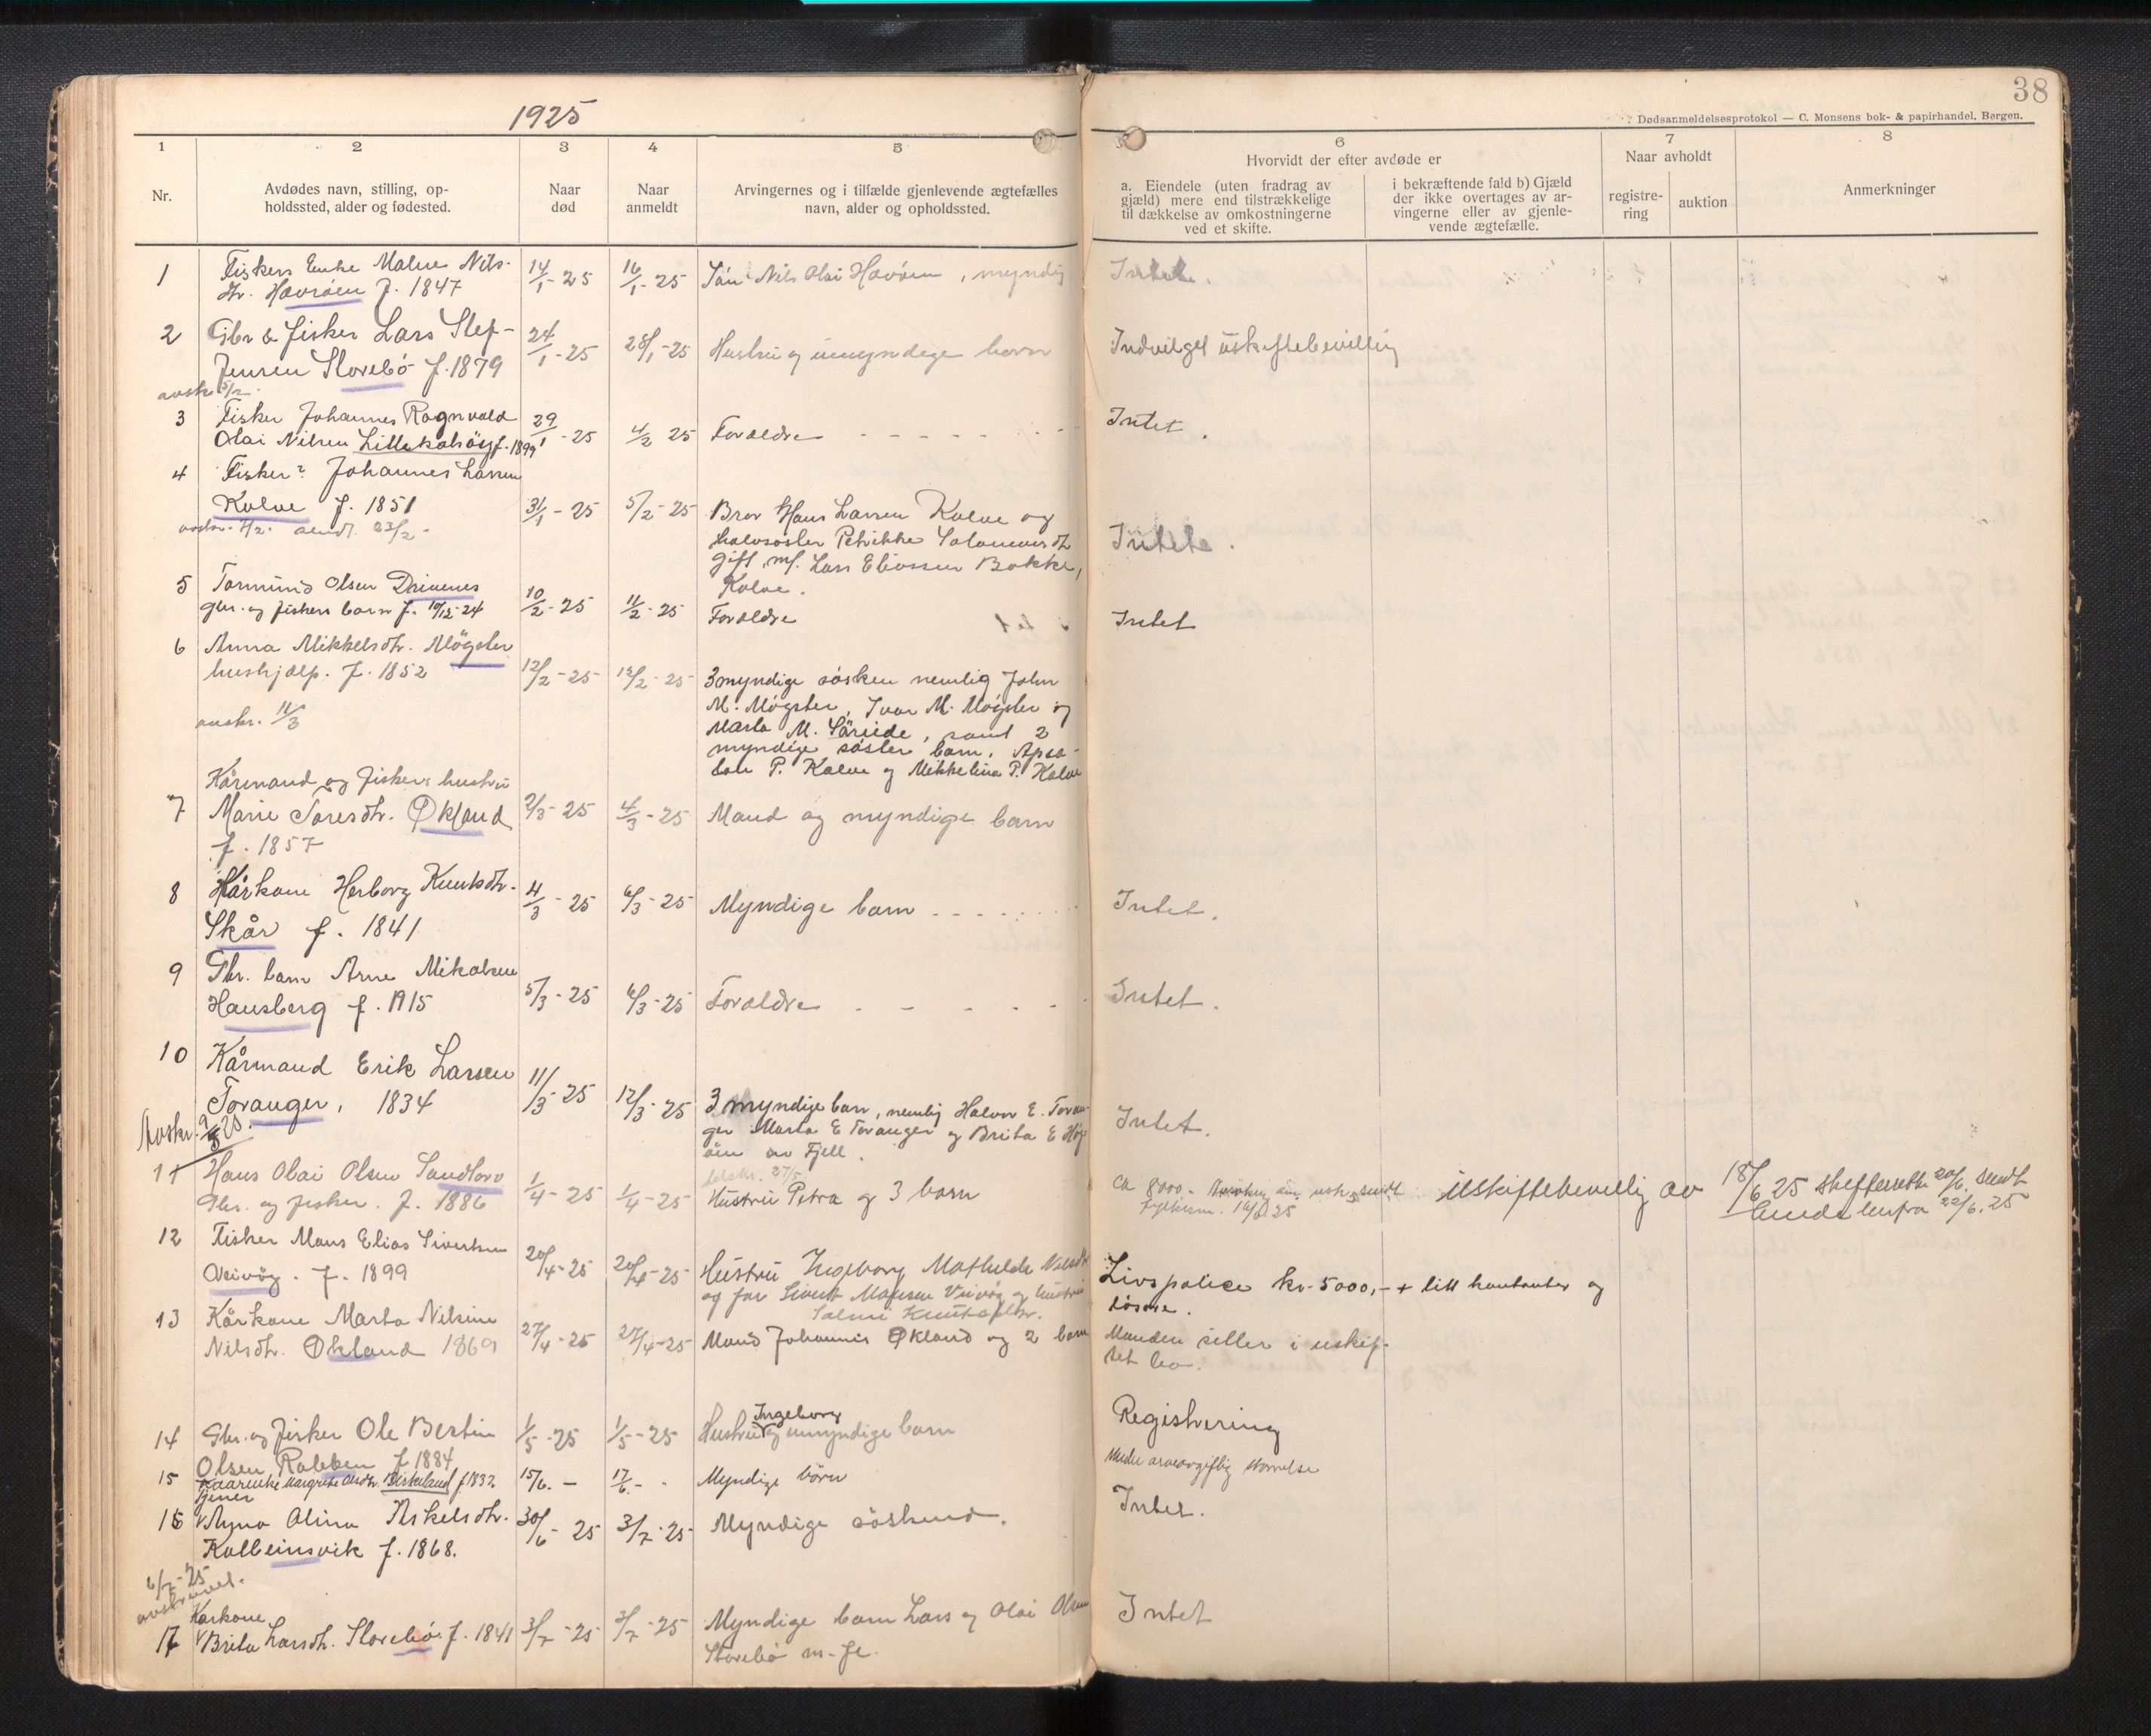 38
1925
Dødsanmeldelsesprotokol — C. Monsens bok- & papirhandel, Bergen.
1
Nr.
2
Avdødes navn, stilling, op-
holdssted, alder og fødested.
3
Naar
død
4
Naar
anmeldt
5
Arvingernes og i tilfælde gjenlevende ægtefælles
navn, alder og opholdssted.
6
Hvorvidt der efter avdøde er
a. Eiendele (uten fradrag av
gjæld) mere end tilstrækkelige
til dækkelse av omkostningerne
ved et skifte.
i bekræftende fald b) Gjæld
der ikke overtages av ar-
vingerne eller av gjenle-
vende ægtefælle.
7
Naar avholdt
registre-
ring
auktion
8
Anmerkninger
1 Fiskers Enke Malene Nils- 14/1-25 16/1-25 Sön Nils Olai Havröen, myndig
dtr. Havröen f. 1847
2 Gbr & fisker Lars Stef- 24/1-25 28/1-25 Hustru og umyndige born Indvilget uskiftebevillig
fensen Storebö f. 1879
avskr 5/2
3 Fisker Johannes Ragnvald 29/1-25 4/2 25 Foreldre Intet.
Olai Nilsen Lillekalsöy f. 1899
4 Fisker? Johannes Larsen
Kalve f. 1851 31/1-25 5/2-25 Bror Hans Larsen Kalve og
halvsöster Petrikke Salomonsdtr
gift m. Lars Eliassen Bakke,
Kalve.
5 Tormund Olsen Drivenes 10/2-25 11/2-25 Foreldre Intet
gbr. og fiskers barn f. 10/12-24
6 Anna Mikkelsdtr. Mögster 12/2-25 12/2-25
hushjælp. f. 1852
3 myndige sösken nemlig John
M. Mögster, Ivar M. Mögster og
Marta M. Särvide, samt 2
myndige söster barn,
P. Kalve og Mikkelina P. Kalve
avskr. 11/3
Kårmand og fiskers hustru
7 Marie Taresdtr. Økland 2/3-25 4/3-25 Mand og myndige barn
f. 1857
8 Kårkone Herborg Knutsdtr. 4/3-25 6/3-25 Myndige barn Intet.
Skår f. 1841
9 Gbr. barn Arne Mikalsen 5/3-25 6/3-25 Foreldre Intet.
Hansberg f. 1915
10 Kårmand Erik Larsen 11/3-25 12/3-25 3 myndige barn, nemlig Halvor E. Toran-
Toranger, 1834
ger Marta E Toranger og Brita E Höy-
öen av Fjell. Intet.
11 Hans Olai Olsen Sandtorv 1/4-25 1/4-25 Hustru Petra og 3 barn
Gbr. og fisker. f. 1886
ca 8000 - sendt
16/6 25
Uskiftebevillig av 18/6 25 20/6 sendt
22/6.25
12 Fisker Mons Elias Sivertsen 20/4-25 20/4-25 Hustru Ingeborg Mathilde Nilsdtr
Veivåg. f. 1899
og far Sivert Monsen Veivåg og hustru
Salmi Knutsdtr.
Livspolice kr. 5000,- + litt kontanter og
lösöre.
13 Kårkone Marta Nilsine 27/4-25 27/4-25 Mand Johannes Økland og 2 barn
Nilsdtr. Økland 1869
Manden sitter i uskif-
tet bo.
14 Gbr. og fisker Ole Bertin 1/5-25 1/5-25 Hustru Ingeborg og umyndige barn Registrering
Olsen Rabben f 1884
15 Kaarenke Margrete Olsdtr. Birkeland f. 1832 15/6. - 17/6. - Myndige börn Under arveavgiftig störrelse
Tjener
16 Anna Olina Askelsdtr. 30/6-25 3/7-25 Myndige söskend. Intet.
Kolbeinsvik f. 1868.
6/7-25
Karkone
17 Brita Larsdtr. Storebö f. 1841 3/7-25 3/7-25 Myndige barn Lars og Olai Olsen Intet
Storebö m. fl.